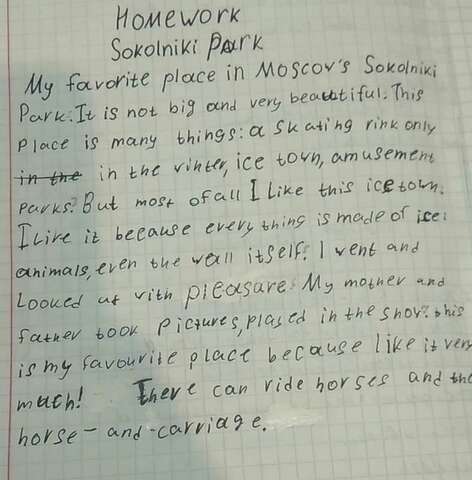 Homework
Sokolniki Park
My favorite place in Moscov's Sokolniki
Park. It is not big and very beautiful. This
place is many things: a skating rink only
in the in the vinter, ice town, amusement
parks. But most of all I like this ice town.
I like it because every thing is made of ice:
animals, even the wall itself. I went and
Looked at vith pleasure. My mother and
father took pictures, plased in the snov. this
is my favourite place because like it very
much! There can ride horses and the
horse-and-carriage.